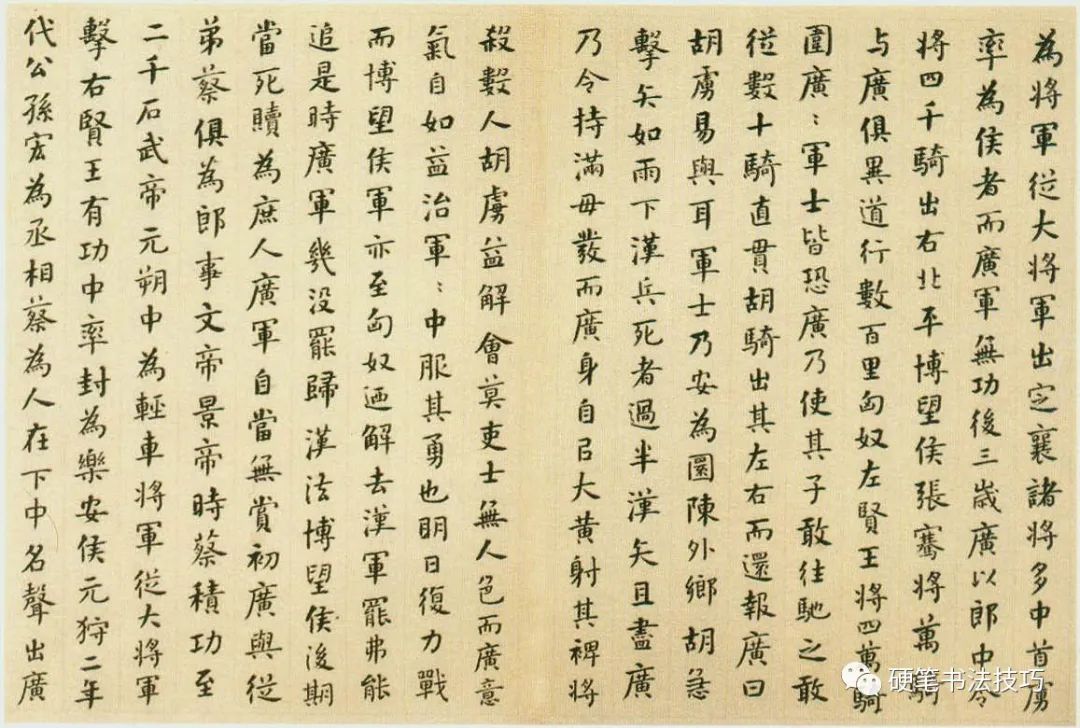 為将軍從大将軍出定襄諸将多中首虜
率為侯者而廣軍無功後三歲廣以郎中令
将四千騎出右北平博望侯張騫将萬騎
与廣俱異道行數百里匈奴左賢王将四萬騎
圍廣〻軍士皆恐廣乃使其子敢往馳之敢
從數十騎直貫胡騎出其左右而還報廣曰
胡虜易與耳軍士乃安為圜陳外鄉胡急
擊矢如雨下漢兵死者過半漢矢且盡廣
乃令持滿毋發而廣身自以大黄射其裨将
殺數人胡虜益解會莫吏士無人色而廣意
氣自如益治軍〻中服其勇也明日復力戰
而博望侯軍亦至匈奴迺解去漢軍罷弗能
追是時廣軍幾没罷歸漢法博望侯後期
當死贖為庶人廣軍自當無賞初廣與從
弟蔡俱為郎事文帝景帝時蔡積功至
二千石武帝元朔中為輕車将軍從大将軍
擊右賢王有功中率封為樂安侯元狩二年
代公孫宏為丞相蔡為人在下中名聲出廣
硬笔书法技巧